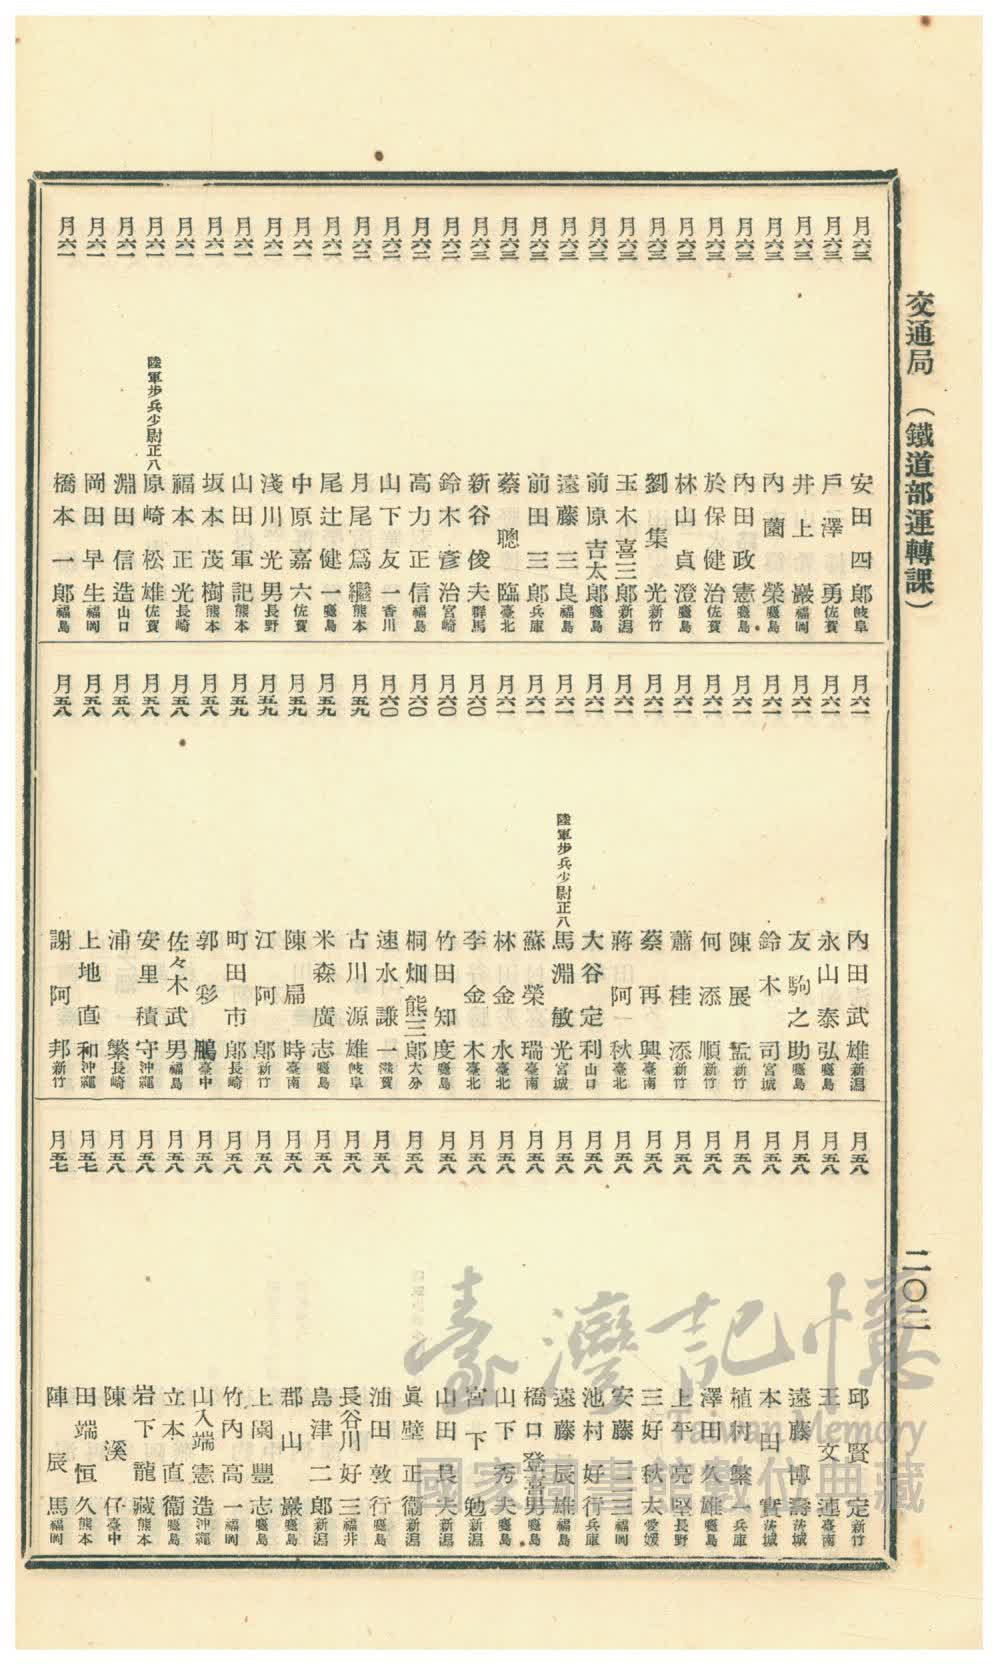 交通局　（鐵道部運轉課）
二〇二
月六三　安田四郎　岐阜
月六三　戶澤勇　佐賀
月六三　井上巖　福岡
月六三　內薗榮　麑島
月六三　內田政憲　麑島
月六三　於保健治　佐賀
月六三　林山貞澄　麑島
月六三　劉集光　新竹
月六三　玉木喜三郎　新潟
月六三　前原吉太郎　麑島
月六三　遠藤三良　福島
月六三　前田三郎　兵庫
月六三　蔡聰臨　臺北
月六三　新谷俊夫　群馬
月六二　鈴木彥治　宮崎
月六二　高力正信　福島
月六二　山下友一　香川
月六二　月尾爲繼　熊本
月六一　尾辻健一　麑島
月六一　中原嘉六　佐賀
月六一　淺川光男　長野
月六一　山田軍記　熊本
月六一　坂本茂樹　熊本
月六一　福本正光　長崎
月六一　陸軍步兵少尉正八　原崎松雄　佐賀
月六一　淵田信造　山口
月六一　岡田早生　福岡
月六一　橋本一郎　福島
月六一　內田武雄　新潟
月六一　永山泰弘　麑島
月六一　友駒之助　麑島
月六一　鈴木司　宮城
月六一　陳展孟　新竹
月六一　何添順　新竹
月六一　蕭桂添　新竹
月六一　蔡再興　臺南
月六一　蔣阿秋　臺北
月六一　大谷定利　山口
月六一　陸軍步兵少尉正八　馬淵敏光　宮城
月六一　蘇榮瑞　臺南
月六一　林金水　臺北
月六〇　李金木　臺北
月六〇　竹田知度　麑島
月六〇　桐畑熊三郎　大分
月六〇　速水謙一　滋賀
月五九　古川源雄　岐阜
月五九　米森廣志　麑島
月五九　陳扁時　臺南
月五九　江阿郎　新竹
月五九　町田市郎　長崎
月五八　郭彩鵬　臺中
月五八　佐々木武男　福島
月五八　安里積守　沖繩
月五八　浦繁　長崎
月五八　上地直和　沖繩
月五八　謝阿邦　新竹
月五八　邱賢定　新竹
月五八　王文連　臺南
月五八　遠藤博壽　茨城
月五八　本田實　茨城
月五八　植村繁一　兵庫
月五八　澤田久雄　麑島
月五八　上平亮堅　長野
月五八　三好秋太　愛媛
月五八　安藤二三　新潟
月五八　池村好行　兵庫
月五八　遠藤辰雄　福島
月五八　橋口登喜男　麑島
月五八　山下秀夫　麑島
月五八　宮下勉　新潟
月五八　山田良夫　新潟
月五八　眞壁正衞　新潟
月五八　浦田敦行　麑島
月五八　長谷川好三　福井
月五八　島津二郎　新潟
月五八　郡山巖　麑島
月五八　上園豐志　麑島
月五八　竹內高一　福岡
月五八　山入端憲造　沖繩
月五八　立本直衞　麑島
月五八　岩下龍藏　熊本
月五八　陳溪仔　臺中
月五七　田端恒久　熊本
月五七　陣辰馬　福岡
臺灣記憶
Taiwan Memory
國家圖書館數位典藏